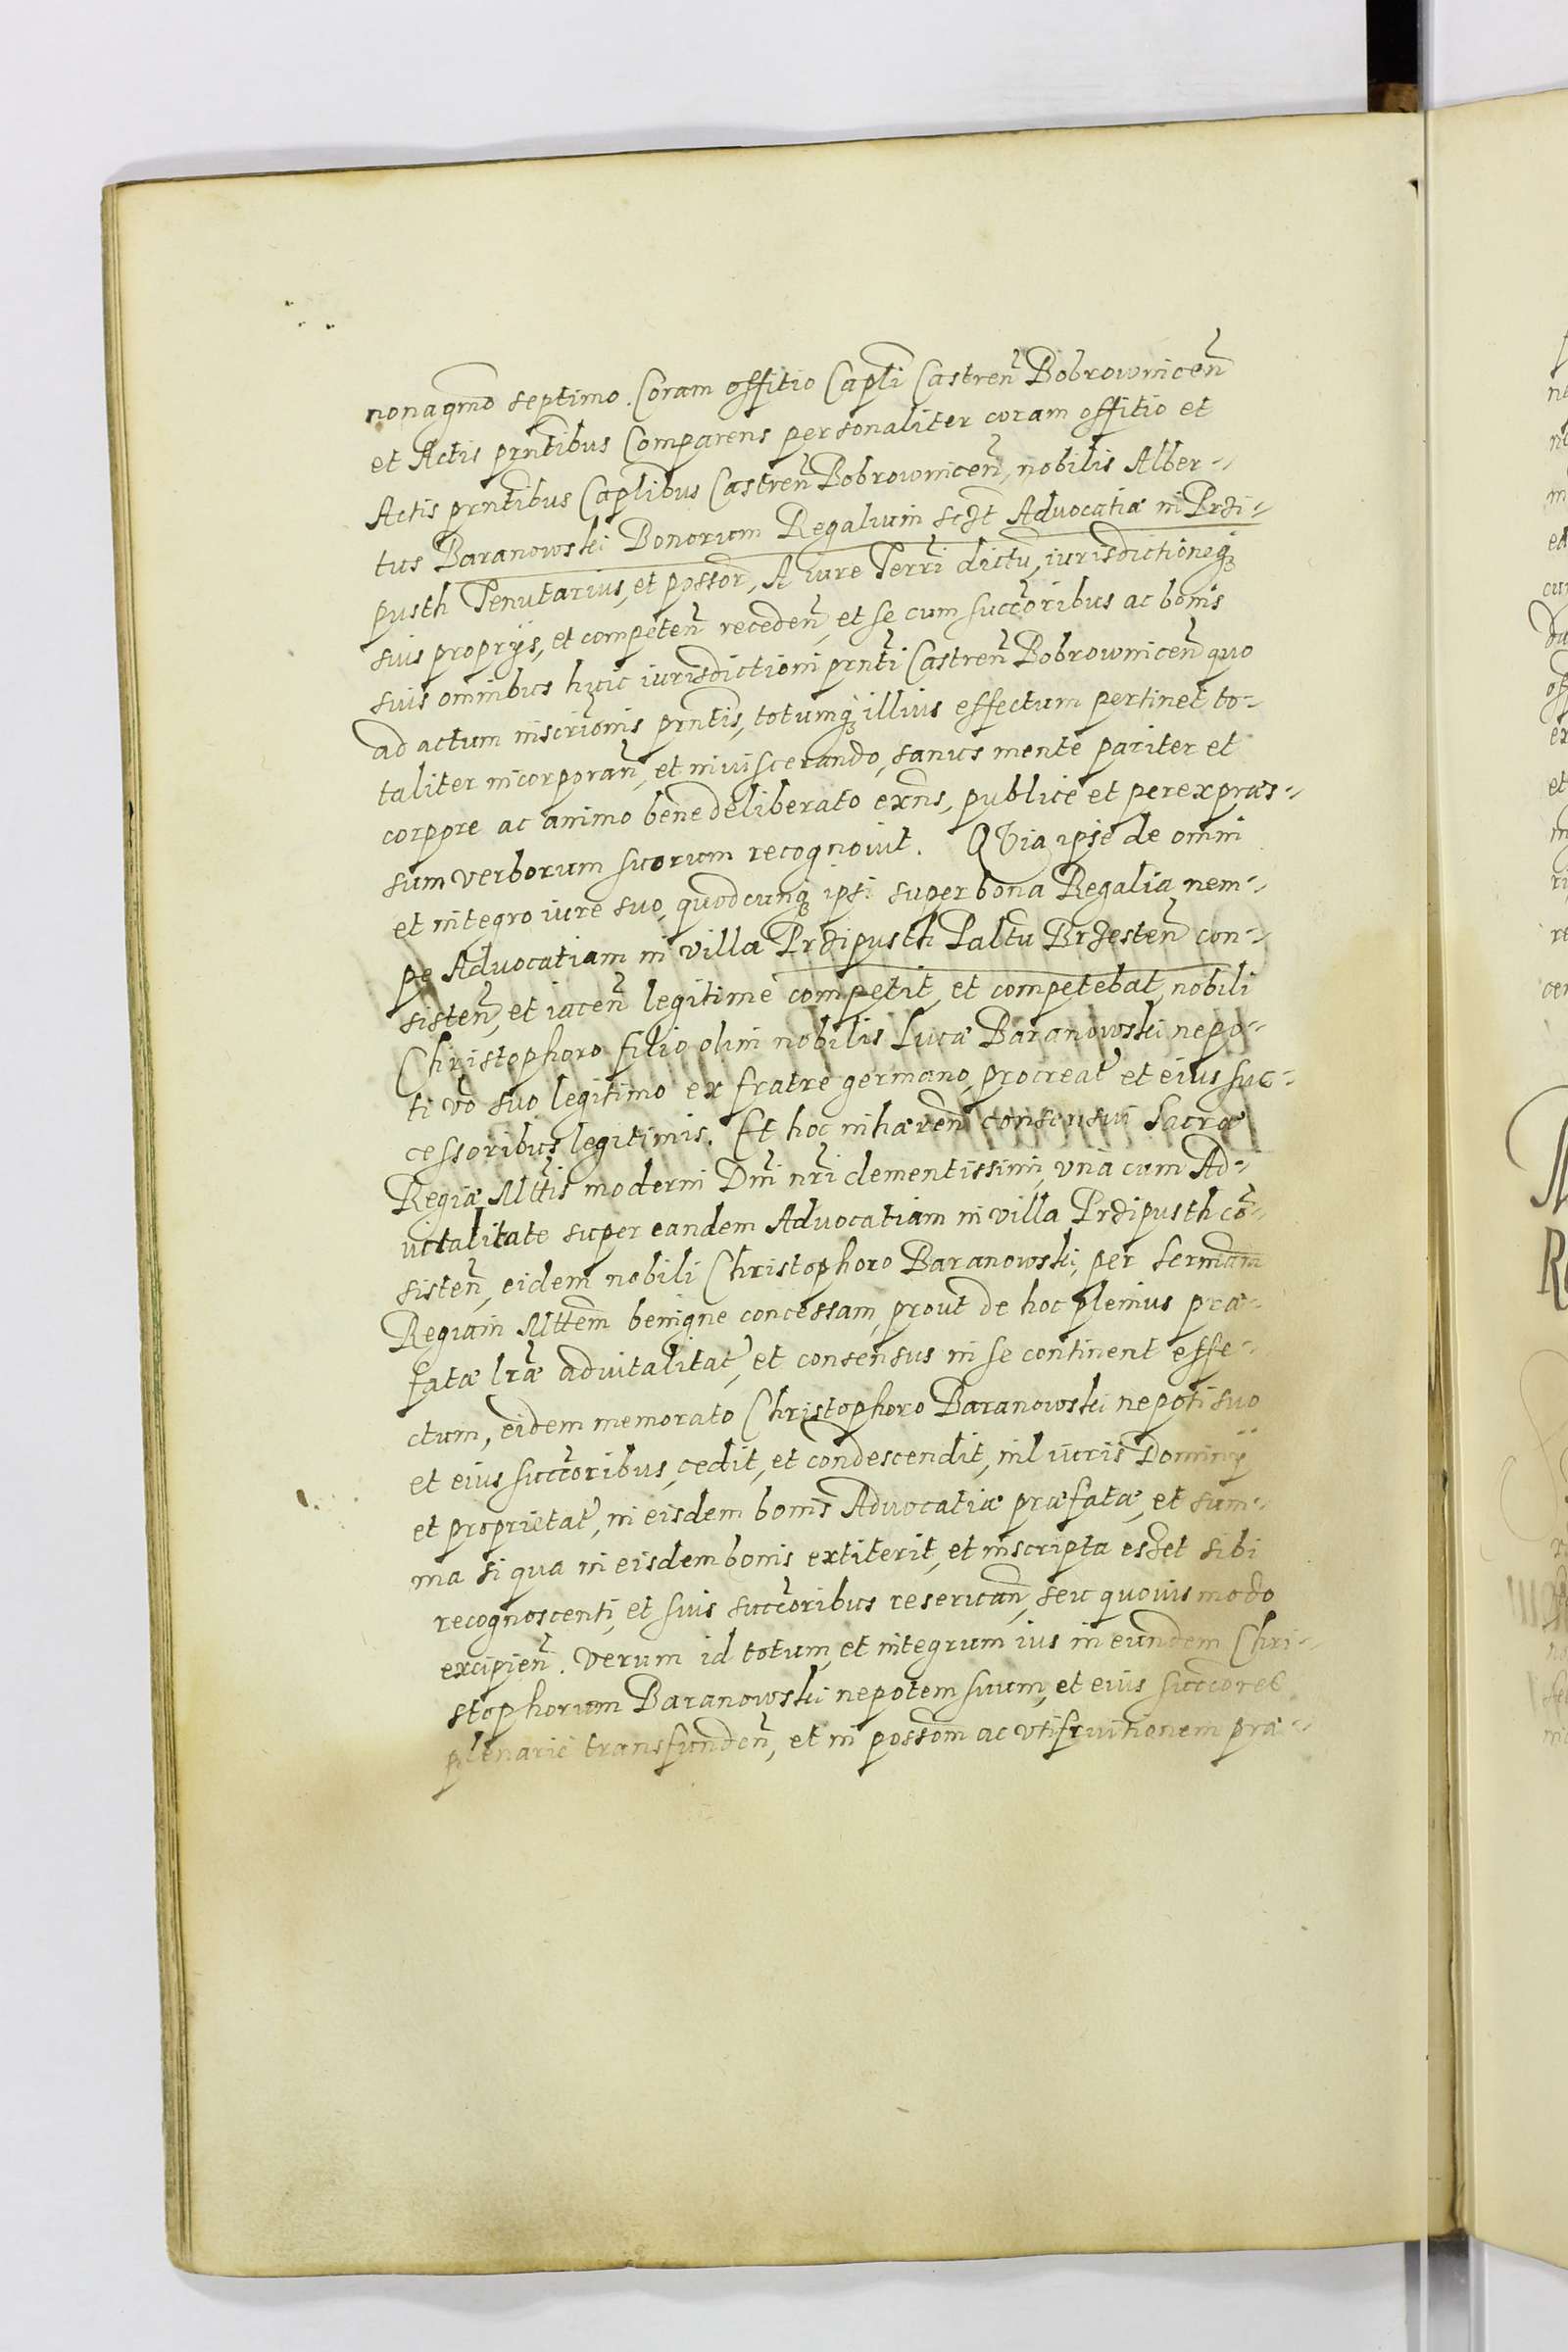 nonagmo septimo. Coram offitio Capli Castren Bobrownicen
et Actis prntibus Comparens personaliter coram offitio et
Actis prntibus Caplibus Castren Bobrownicen, nobilis Alber-
tus Baranowski Bonorum Regalium sczt Advocatiæ in Przi-
pusth Tenutarius, et possor, A iure Terri dictu, iurisdictioneq
suis proprijs, et competen receden, et se cum succoribus ac bonis
suis omnibus huic iurisdictioni prnti Castren Bobrownicen quo
ad actum inscrionis prntis, totumq illius effectum pertinet to-
taliter incorporan, et inviscerando, sanus mente pariter et
corpore ac animo bene deliberato exns, publice et per expræs-
sum verborum suorum recognovit. QVia ipse de omni
et integro iure suo, quodcunq ipsi super bona Regalia nem-
pe Advocatiam in villa Przipusth Paltu Brzesten con-
sisten, et iacen legitime competit, et competebat, nobili
Christophoro filio olim nobilis Lucæ Baranowski nepo-
ti vo suo legitimo ex fratre germano, procreat et eius suc-
cessoribus legitimis. Et hoc inhæren consensui Sacræ
Regiæ Mttis moderni Dni nri clementissimi, vna cum Ad-
vitalitate super eandem Advocatiam in villa Przipusth co-
sisten, eidem nobili Christophoro Baranowski, per Sermam
Regiam Mttem benigne concessam, prout de hoc plenius præ-
fatæ lræ advitalitat, et consensus in se continent effe-
ctum, eidem memorato Christophoro Baranowski nepoti suo
et eius succoribus, cedit, et condescendit, nil iuris Dominij
et proprietat, in eisdem bonis Advocatiæ præfatæ, et sum-
ma si qua in eisdem bonis extiterit, et inscripta esset sibi
recognoscenti, et suis succoribus reservan, seu quovis modo
excipien. Verum id totum, et integrum ius in eundem Chri-
stophorum Baranowski nepotem suum, et eius succores
plenarie transfunden, et in possom ac vtifruitionem præ-